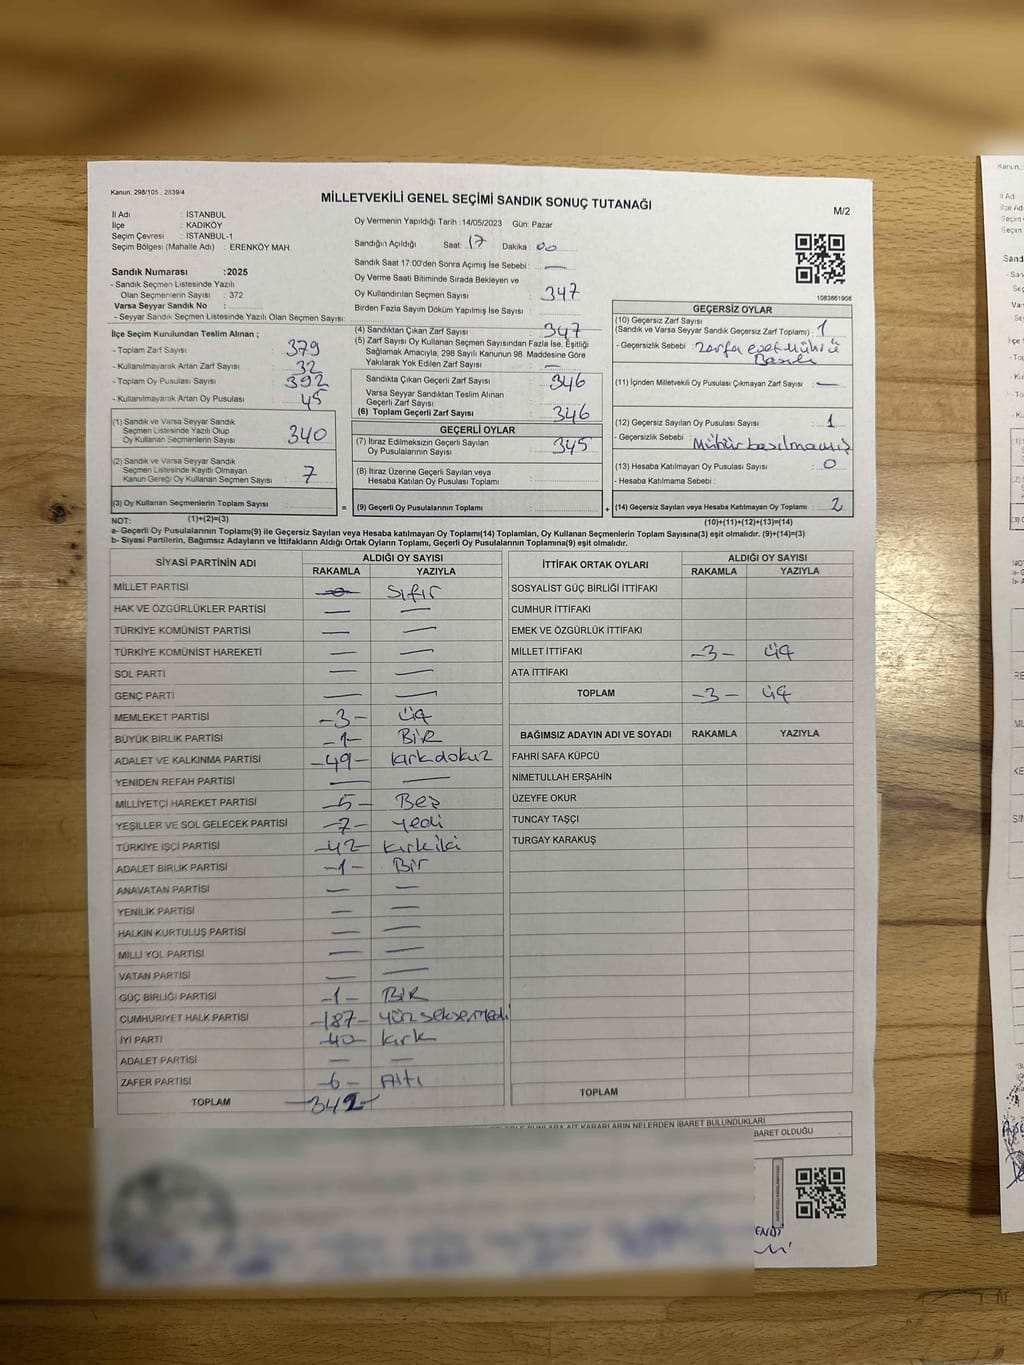 Kanun, 298/105 , 2839/4
MİLLETVEKİLİ GENEL SEÇİMİ SANDIK SONUÇ TUTANAĞI
M/2
İl Adı : İSTANBUL
İlçe : KADIKÖY
Seçim Çevresi : İSTANBUL-1
Seçim Bölgesi (Mahalle Adı) : ERENKÖY MAH.
Sandık Numarası :2025
- Sandık Seçmen Listesinde Yazılı
Olan Seçmenlerin Sayısı : 372
Varsa Seyyar Sandık No :
- Seyyar Sandık Seçmen Listesinde Yazılı Olan Seçmen Sayısı:
İlçe Seçim Kurulundan Teslim Alınan ;
- Toplam Zarf Sayısı : 379
- Kullanılmayarak Artan Zarf Sayısı : 32
- Toplam Oy Pusulası Sayısı : 392
- Kullanılmayarak Artan Oy Pusulası : 45
(1) Sandık ve Varsa Seyyar Sandık
Seçmen Listesinde Yazılı Olup
Oy Kullanan Seçmenlerin Sayısı : 340
(2) Sandık ve Varsa Seyyar Sandık
Seçmen Listesinde Kayıtlı Olmayan
Kanun Gereği Oy Kullanan Seçmen Sayısı : 7
(3) Oy Kullanan Seçmenlerin Toplam Sayısı :
Oy Vermenin Yapıldığı Tarih : 14/05/2023 Gün: Pazar
Sandığın Açıldığı Saat : 17 Dakika : 00
Sandık Saat 17:00'den Sonra Açımış İse Sebebi : —
Oy Verme Saati Bitiminde Sırada Bekleyen ve
Oy Kullandırılan Seçmen Sayısı : 347
Birden Fazla Sayım Döküm Yapılmış İse Sayısı :
(4) Sandıktan Çıkan Zarf Sayısı : 347
(5) Zarf Sayısı Oy Kullanan Seçmen Sayısından Fazla İse, Eşitliği
Sağlamak Amacıyla, 298 Sayılı Kanunun 98. Maddesine Göre
Yakılarak Yok Edilen Zarf Sayısı : —
Sandıkta Çıkan Geçerli Zarf Sayısı : 346
Varsa Seyyar Sandıktan Teslim Alınan
Geçerli Zarf Sayısı :
(6) Toplam Geçerli Zarf Sayısı : 346
GEÇERLİ OYLAR
(7) İtiraz Edilmeksizin Geçerli Sayılan
Oy Pusulalarının Sayısı : 345
(8) İtiraz Üzerine Geçerli Sayılan veya
Hesaba Katılan Oy Pusulası Toplamı :
= (9) Geçerli Oy Pusulalarının Toplamı :
1083861906
GEÇERSİZ OYLAR
(10) Geçersiz Zarf Sayısı
(Sandık ve Varsa Seyyar Sandık Geçersiz Zarf Toplamı) : 1
- Geçersizlik Sebebi : Zarfa evet Mührü
Basılı
(11) İçinden Milletvekili Oy Pusulası Çıkmayan Zarf Sayısı : —
(12) Geçersiz Sayılan Oy Pusulası Sayısı : 1
- Geçersizlik Sebebi : Mühür basılmamış
(13) Hesaba Katılmayan Oy Pusulası Sayısı : 0
- Hesaba Katılmama Sebebi :
+ (14) Geçersiz Sayılan veya Hesaba Katılmayan Oy Toplamı : 2
NOT: (1)+(2)=(3) (10)+(11)+(12)+(13)=(14)
a- Geçerli Oy Pusulalarının Toplamı(9) ile Geçersiz Sayılan veya Hesaba katılmayan Oy Toplamı(14) Toplamları, Oy Kullanan Seçmenlerin Toplam Sayısına(3) eşit olmalıdır. (9)+(14)=(3)
b- Siyasi Partilerin, Bağımsız Adayların ve İttifakların Aldığı Oy Sayısı, Geçerli Oy Pusulalarının Toplamına(9) eşit olmalıdır.
SİYASİ PARTİNİN ADI ALDIĞI OY SAYISI
RAKAMLA YAZIYLA
MİLLET PARTİSİ -0- Sıfır
HAK VE ÖZGÜRLÜKLER PARTİSİ — —
TÜRKİYE KOMÜNİST PARTİSİ — —
TÜRKİYE KOMÜNİST HAREKETİ — —
SOL PARTİ — —
GENÇ PARTİ — —
MEMLEKET PARTİSİ -3- üç
BÜYÜK BİRLİK PARTİSİ -1- BİR
ADALET VE KALKINMA PARTİSİ -49- kırkdokuz
YENİDEN REFAH PARTİSİ — —
MİLLİYETÇİ HAREKET PARTİSİ -5- Beş
YEŞİLLER VE SOL GELECEK PARTİSİ -7- yedi
TÜRKİYE İŞÇİ PARTİSİ -42- kırkiki
ADALET BİRLİK PARTİSİ -1- Bir
ANAVATAN PARTİSİ — —
YENİLİK PARTİSİ — —
HALKIN KURTULUŞ PARTİSİ — —
MİLLİ YOL PARTİSİ — —
VATAN PARTİSİ — —
GÜÇ BİRLİĞİ PARTİSİ -1- BİR
CUMHURİYET HALK PARTİSİ -187- yüzseksenyedi
İYİ PARTİ -40- kırk
ADALET PARTİSİ — —
ZAFER PARTİSİ -6- Altı
TOPLAM -342-
İTTİFAK ORTAK OYLARI ALDIĞI OY SAYISI
RAKAMLA YAZIYLA
SOSYALİST GÜÇ BİRLİĞİ İTTİFAKI
CUMHUR İTTİFAKI
EMEK VE ÖZGÜRLÜK İTTİFAKI
MİLLET İTTİFAKI -3- üç
ATA İTTİFAKI
TOPLAM -3- üç
BAĞIMSIZ ADAYIN ADI VE SOYADI RAKAMLA YAZIYLA
FAHRİ SAFA KÜPCÜ
NİMETULLAH ERŞAHİN
ÜZEYFE OKUR
TUNCAY TAŞÇI
TURGAY KARAKUŞ
TOPLAM
KARARLARIN NELERDEN İBARET BULUNDUKLARI
BARET OLDUĞU